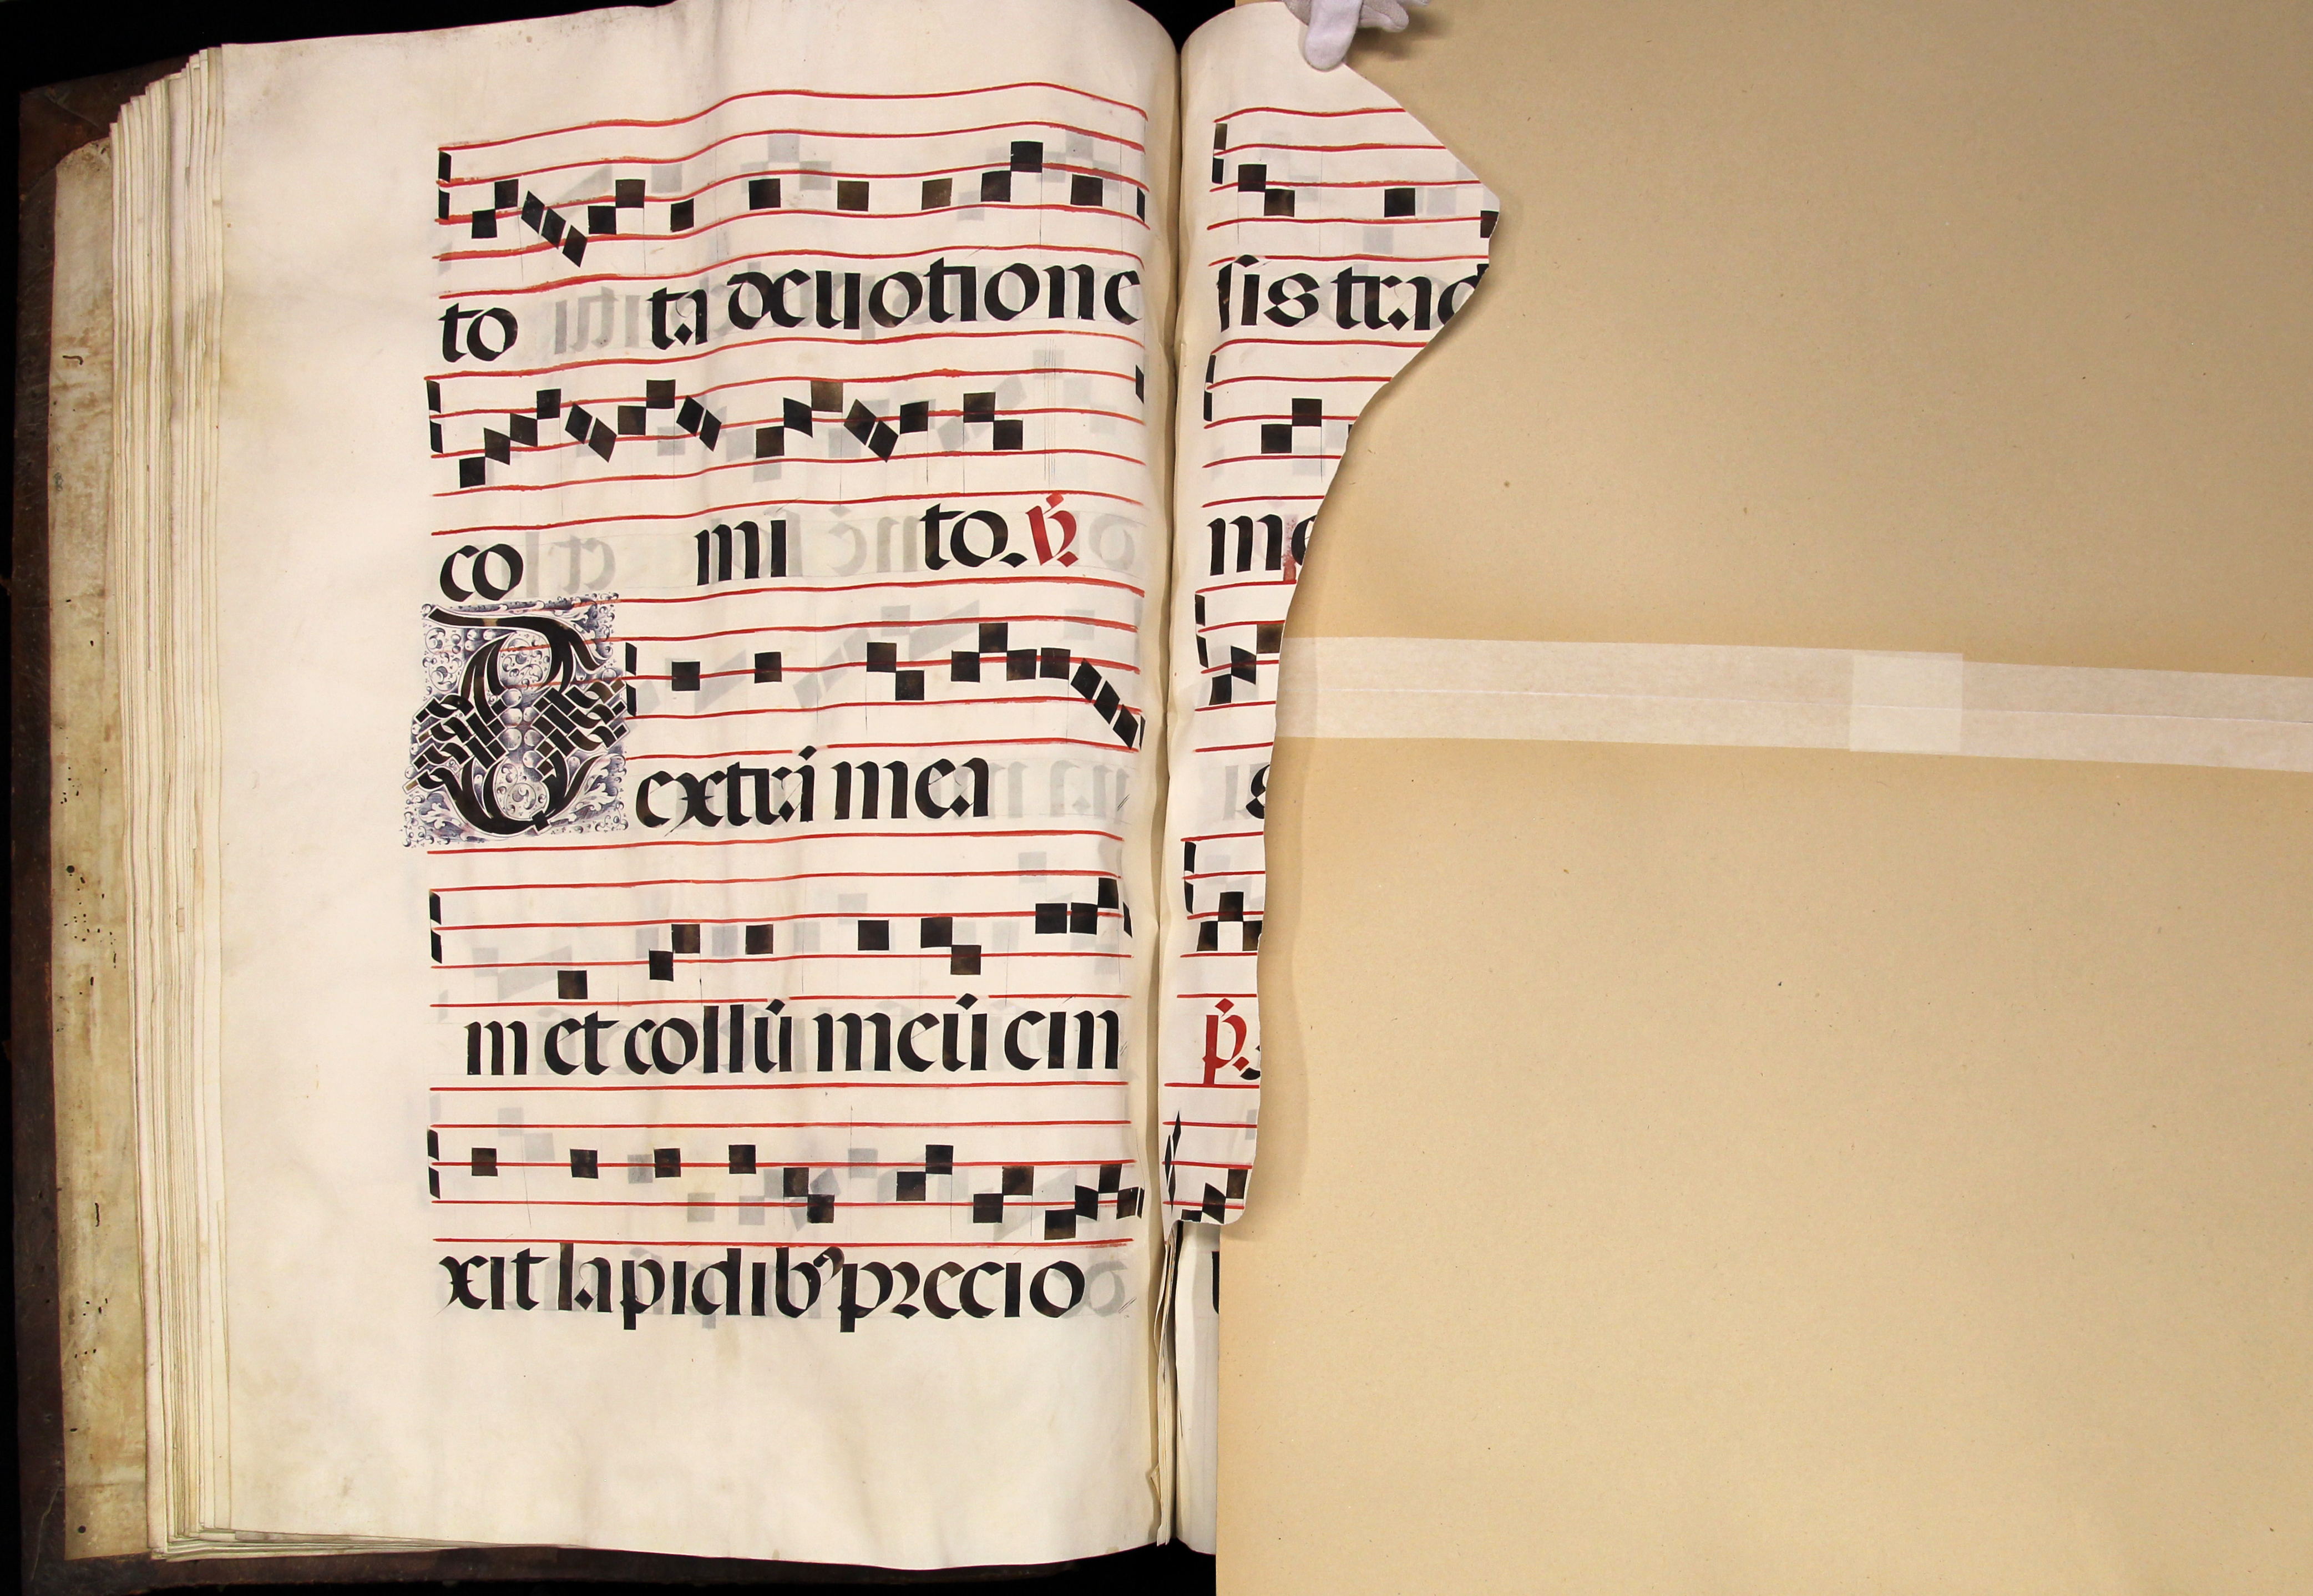 to ta deuotione
co mi to. ℟
Dextrā mea
m et collū meū cin
xit lapidib᷒ precio
sis trad
me
s
p.